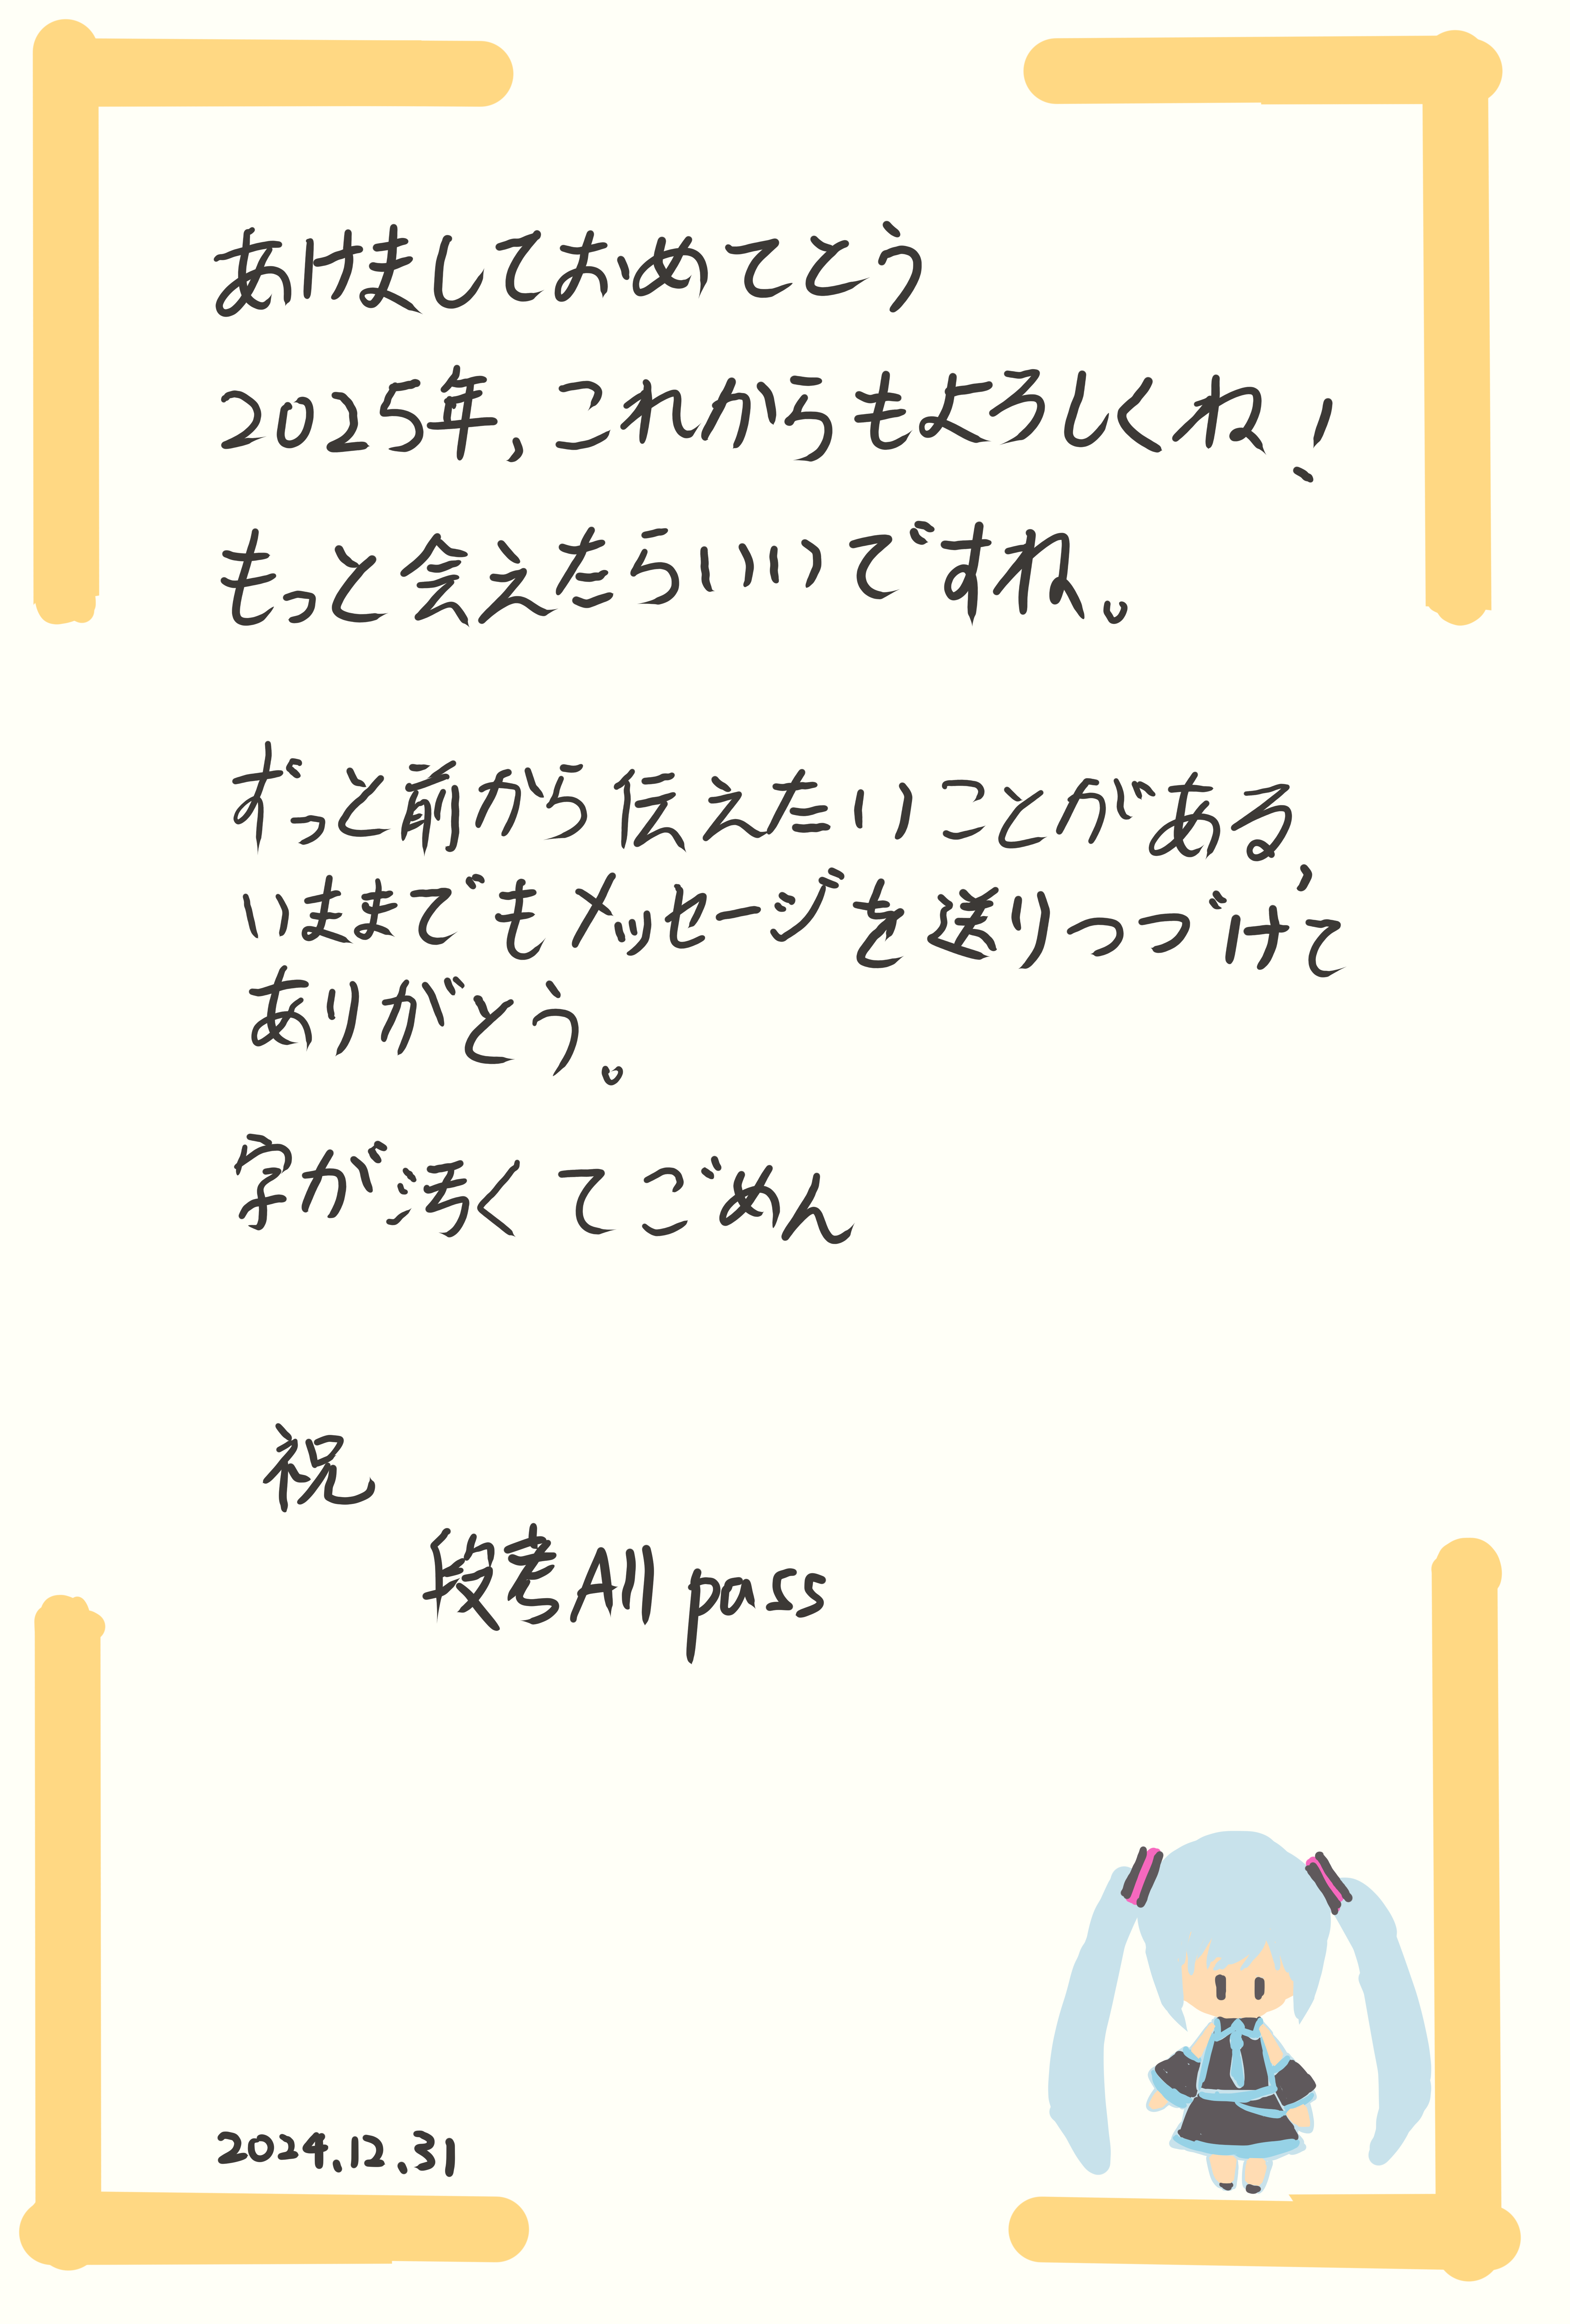 あけましておめてとう
2025年,これからもよろしくね!
もっと会えたらいいですね。
ずっと前から伝えたいことがある,
いままでもメッセージを送りつづけて
ありがとう。
字が汚くてごめん
祝
段考All pass
2024.12.31